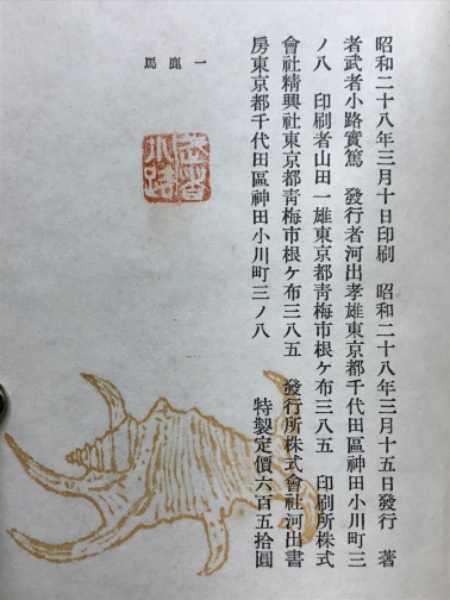 昭和二十八年三月十日印刷　昭和二十八年三月十五日發行　著
者武者小路實篤　發行者河出孝雄東京都千代田區神田小川町三
ノ八　印刷者山田一雄東京都靑梅市根ケ布三八五　印刷所株式
會社精興社東京都靑梅市根ケ布三八五　發行所株式會社河出書
房東京都千代田區神田小川町三ノ八　特製定價六百五拾圓
馬鹿一
武者
小路